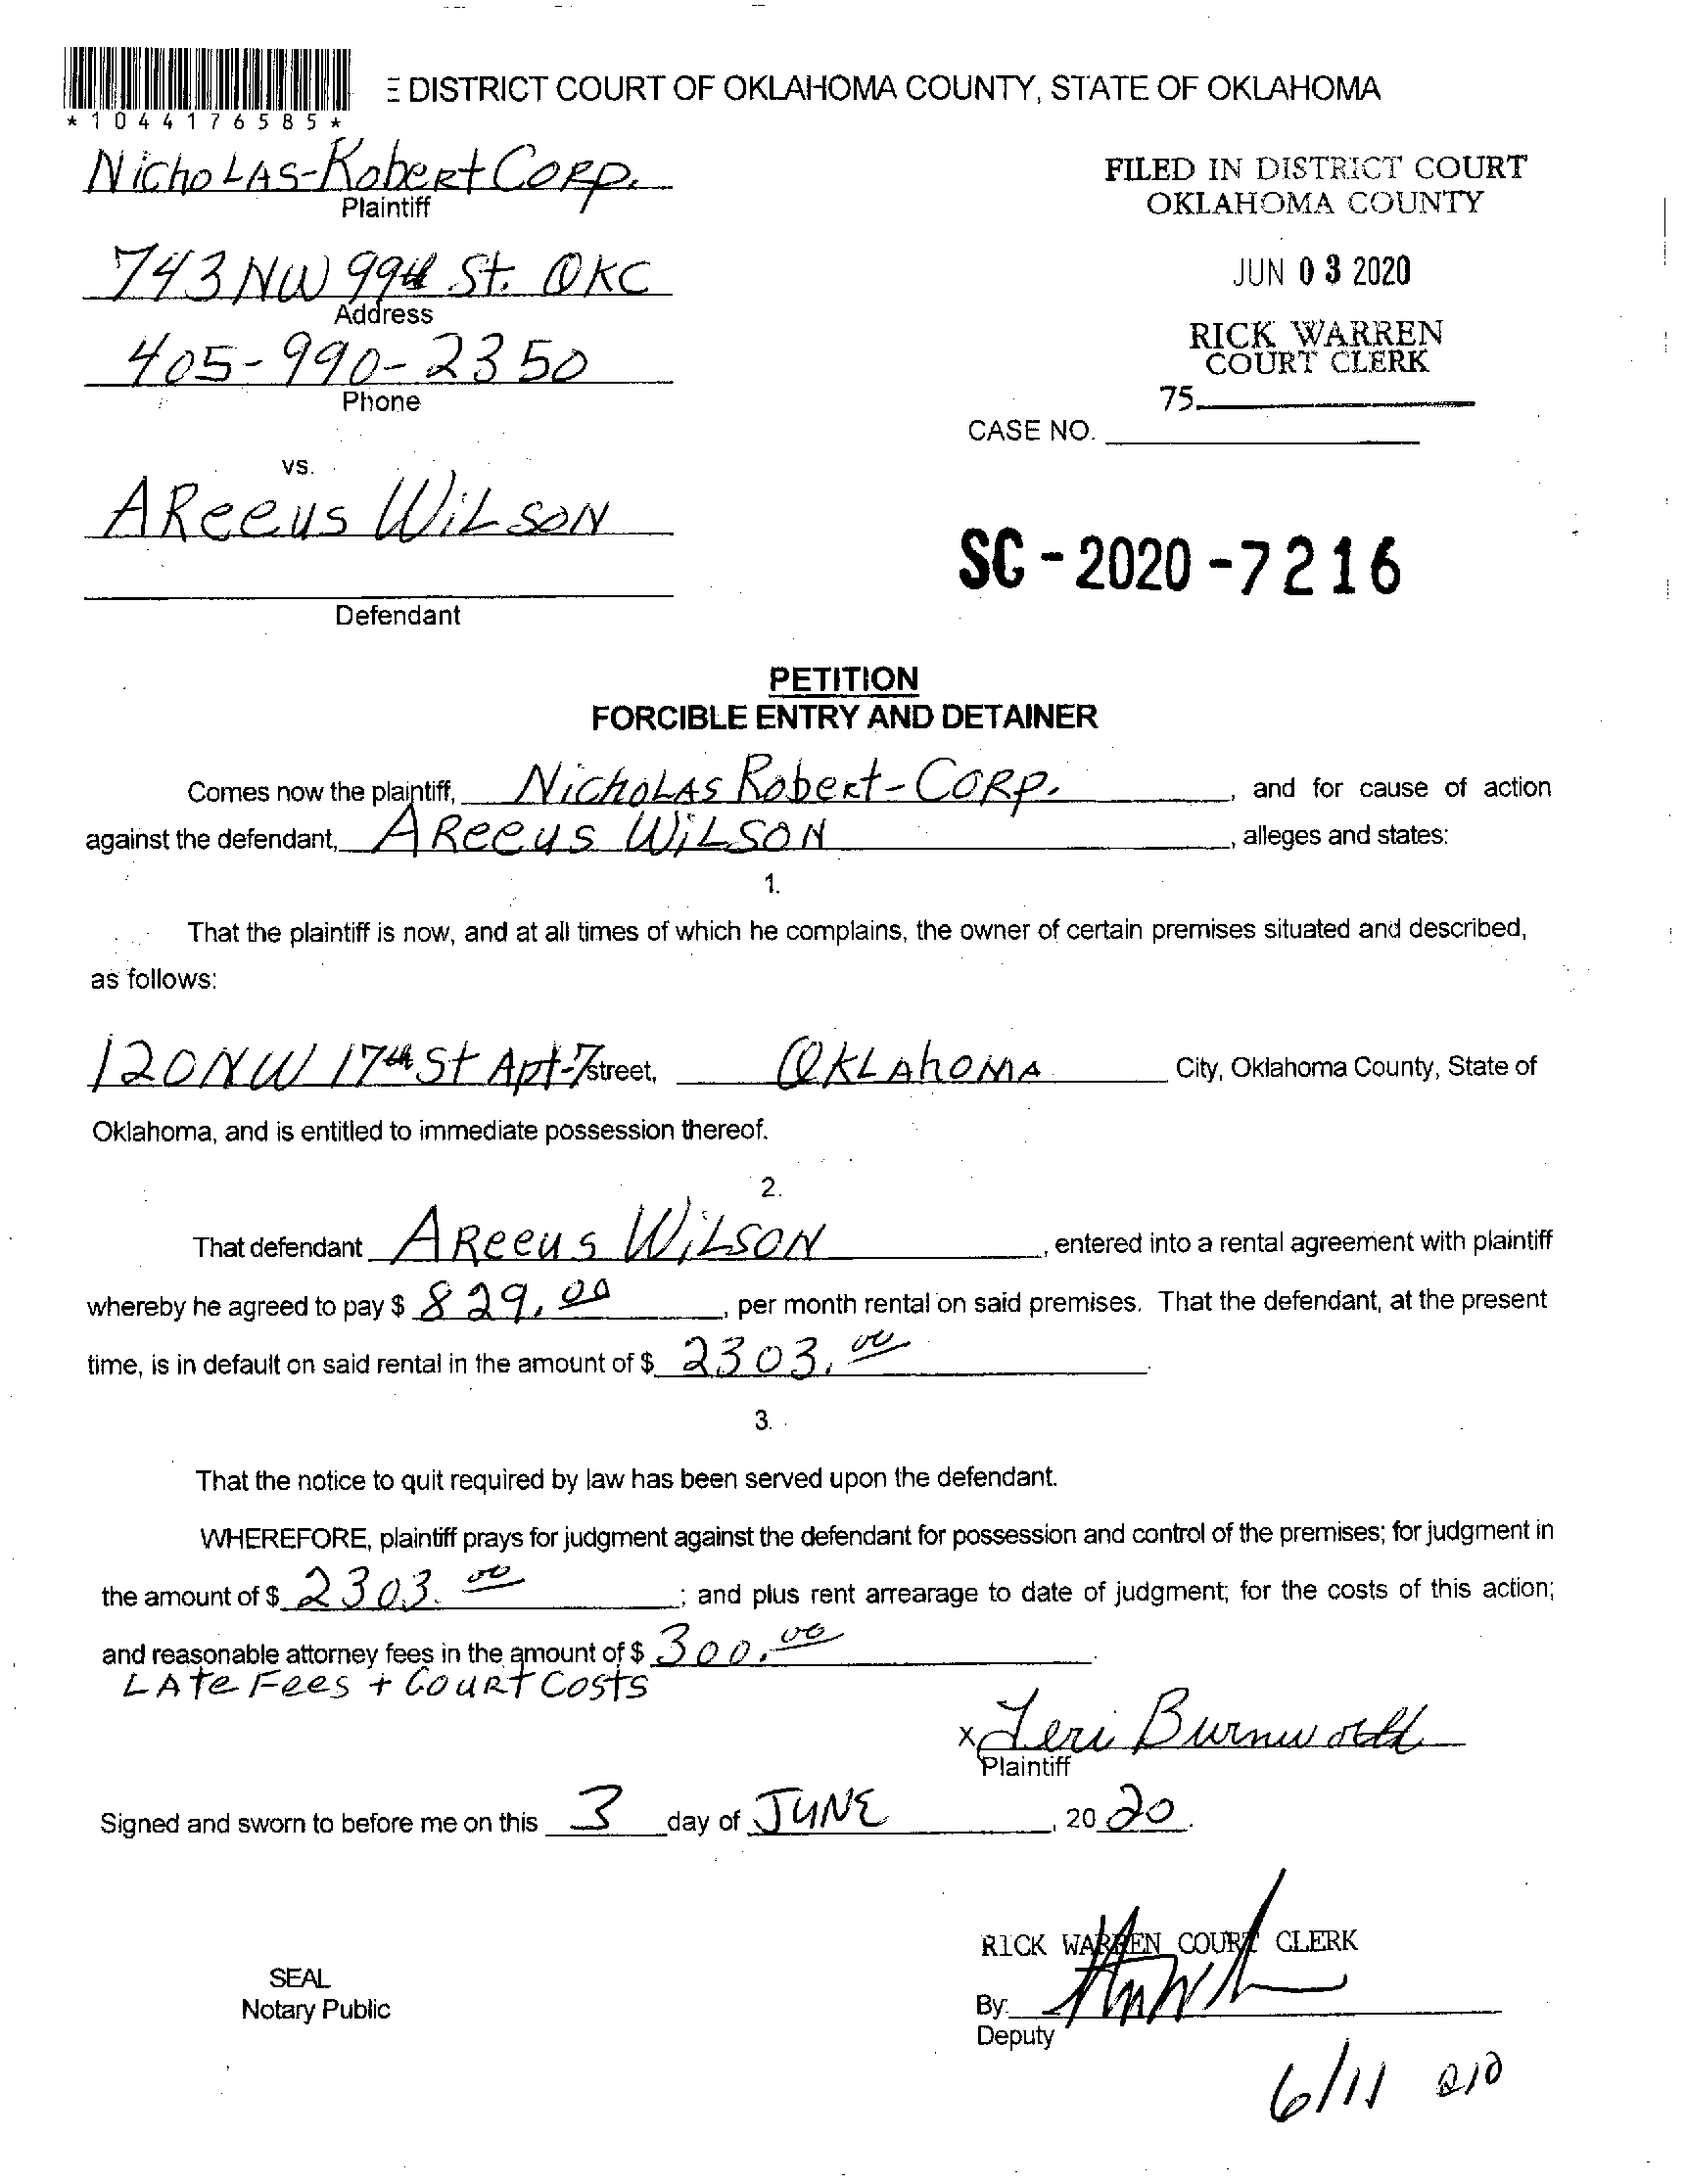 DISTRICT COURT OF OKLAHOMA COUNTY, STATE OF OKLAHOMA
*1044176585*
Nicholas-Robert Corp.
Plaintiff
743 NW 99th St. OKC
Address
405-990-2350
Phone
FILED IN DISTRICT COURT
OKLAHOMA COUNTY
JUN 03 2020
RICK WARREN
COURT CLERK
75
CASE NO.
vs.
AReeus Wilson
Defendant
SC-2020-7216
PETITION
FORCIBLE ENTRY AND DETAINER
Comes now the plaintiff, Nicholas Robert-Corp. , and for cause of action
against the defendant, AReeus Wilson , alleges and states:
1.
That the plaintiff is now, and at all times of which he complains, the owner of certain premises situated and described,
as follows:
120 NW 17th St Apt-7 street, Oklahoma City, Oklahoma County, State of
Oklahoma, and is entitled to immediate possession thereof.
2.
That defendant AReeus Wilson , entered into a rental agreement with plaintiff
whereby he agreed to pay $ 829.00 , per month rental on said premises. That the defendant, at the present
time, is in default on said rental in the amount of $ 2303.00
3.
That the notice to quit required by law has been served upon the defendant.
WHEREFORE, plaintiff prays for judgment against the defendant for possession and control of the premises; for judgment in
the amount of $ 2303.00 ; and plus rent arrearage to date of judgment; for the costs of this action;
and reasonable attorney fees in the amount of $ 300.00
Late Fees + Court Costs
x Teri Burnworth
Plaintiff
Signed and sworn to before me on this 3 day of JUNE , 20 20.
RICK WARREN COURT CLERK
SEAL
Notary Public
By
Deputy
6/11 210